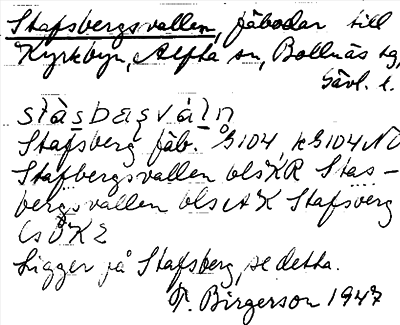 Stafsbergsvallen, fäbodar till
Kyrkbyn, Alfta sn, Bollnäs tg,
Gävl. l.
stàsbaṣvál̥n
Stafsberg fäb. G104, kG104 NO
Stafbergsvallen blsKR Stas-
bergsvallen blsAK Stafsberg
GsÖKE
Ligger på Stafsberg, se detta.
F. Birgerson 1947